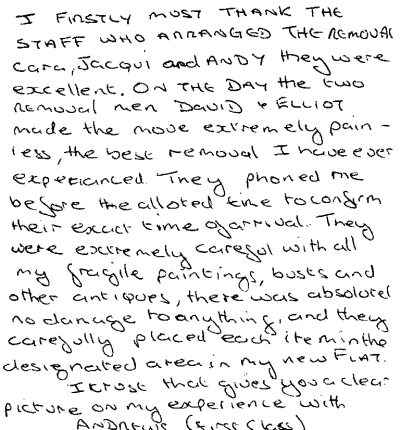 I FIRSTLY MUST THANK THE
STAFF WHO ARRANGED THE REMOVAL
Cara, Jacqui and ANDY they were
excellent. ON THE DAY the two
removal men DAVID & ELLIOT
made the move extremely pain -
less, the best removal I have ever
experianced. They phoned me
before the alloted time to confirm
their exact time of arrival. They
were extremely careful with all
my fragile paintings, busts and
other antiques, there was absolutel
no damage to anything, and they
carefully placed each item in the
designated area in my new FLAT.
I trust that gives you a clear
picture on my experience with
ANDREWS (First Class)